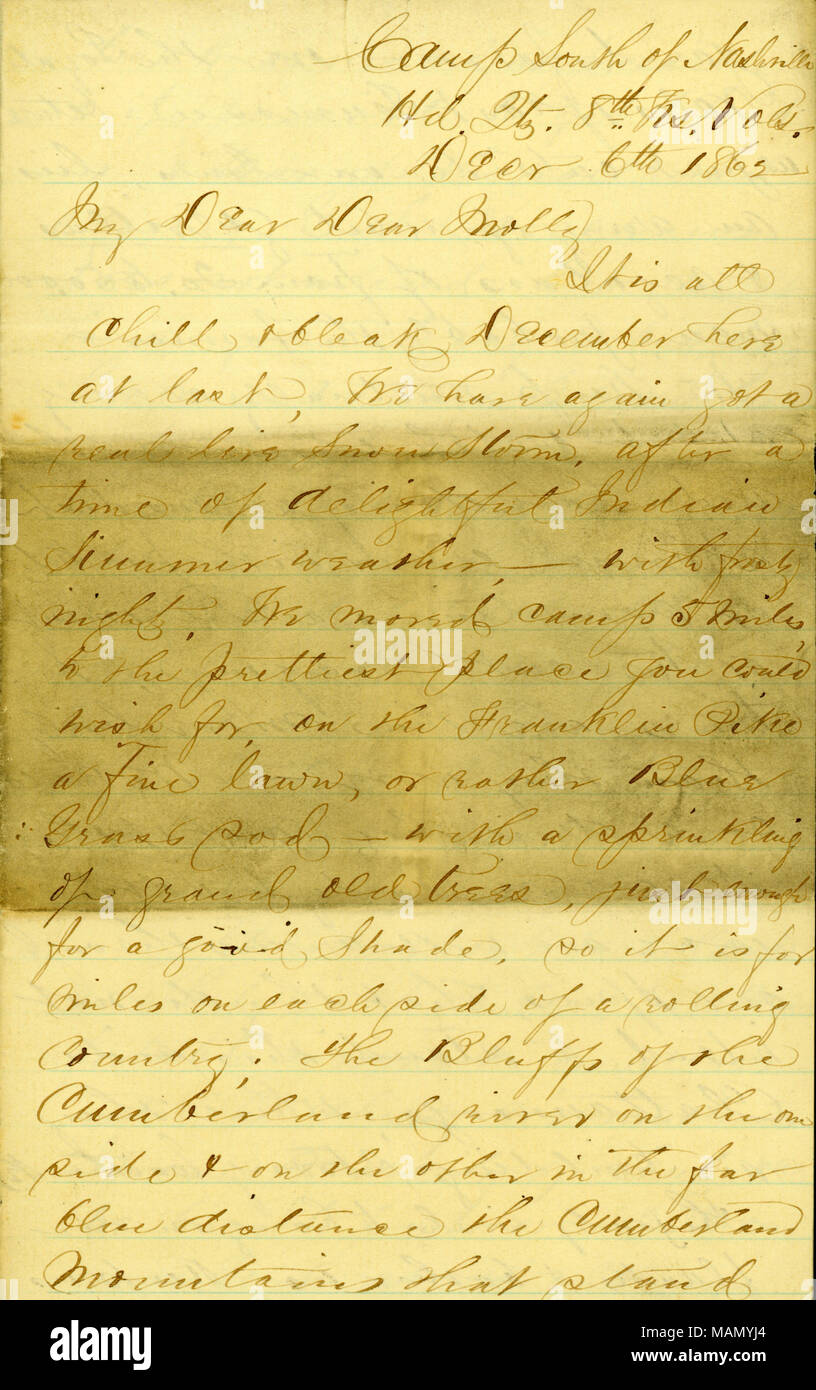 Camp South of Nashville
Hd. Qts. 8th Ks. Vols.
Decr 6th 1862
My Dear Dear Molly
It is all
chill & bleak December here
at last, We have again got a
real live Snow Storm, after a
time of delightful Indian
Summer weather, — with frosty
night. We moved camp 5 miles,
to the prettiest place you could
wish for, on the Franklin Pike
a Fine lawn, or rather Blue
Grass sod — with a sprinkling
of grand old trees, just enough
for a good Shade, so it is for
miles on each side of a rolling
Country. The Bluffs of the
Cumberland river on the one
side & on the other in the far
blue distance the Cumberland
Mountains that stand
alamy
Image ID: MAMYJ4
www.alamy.com